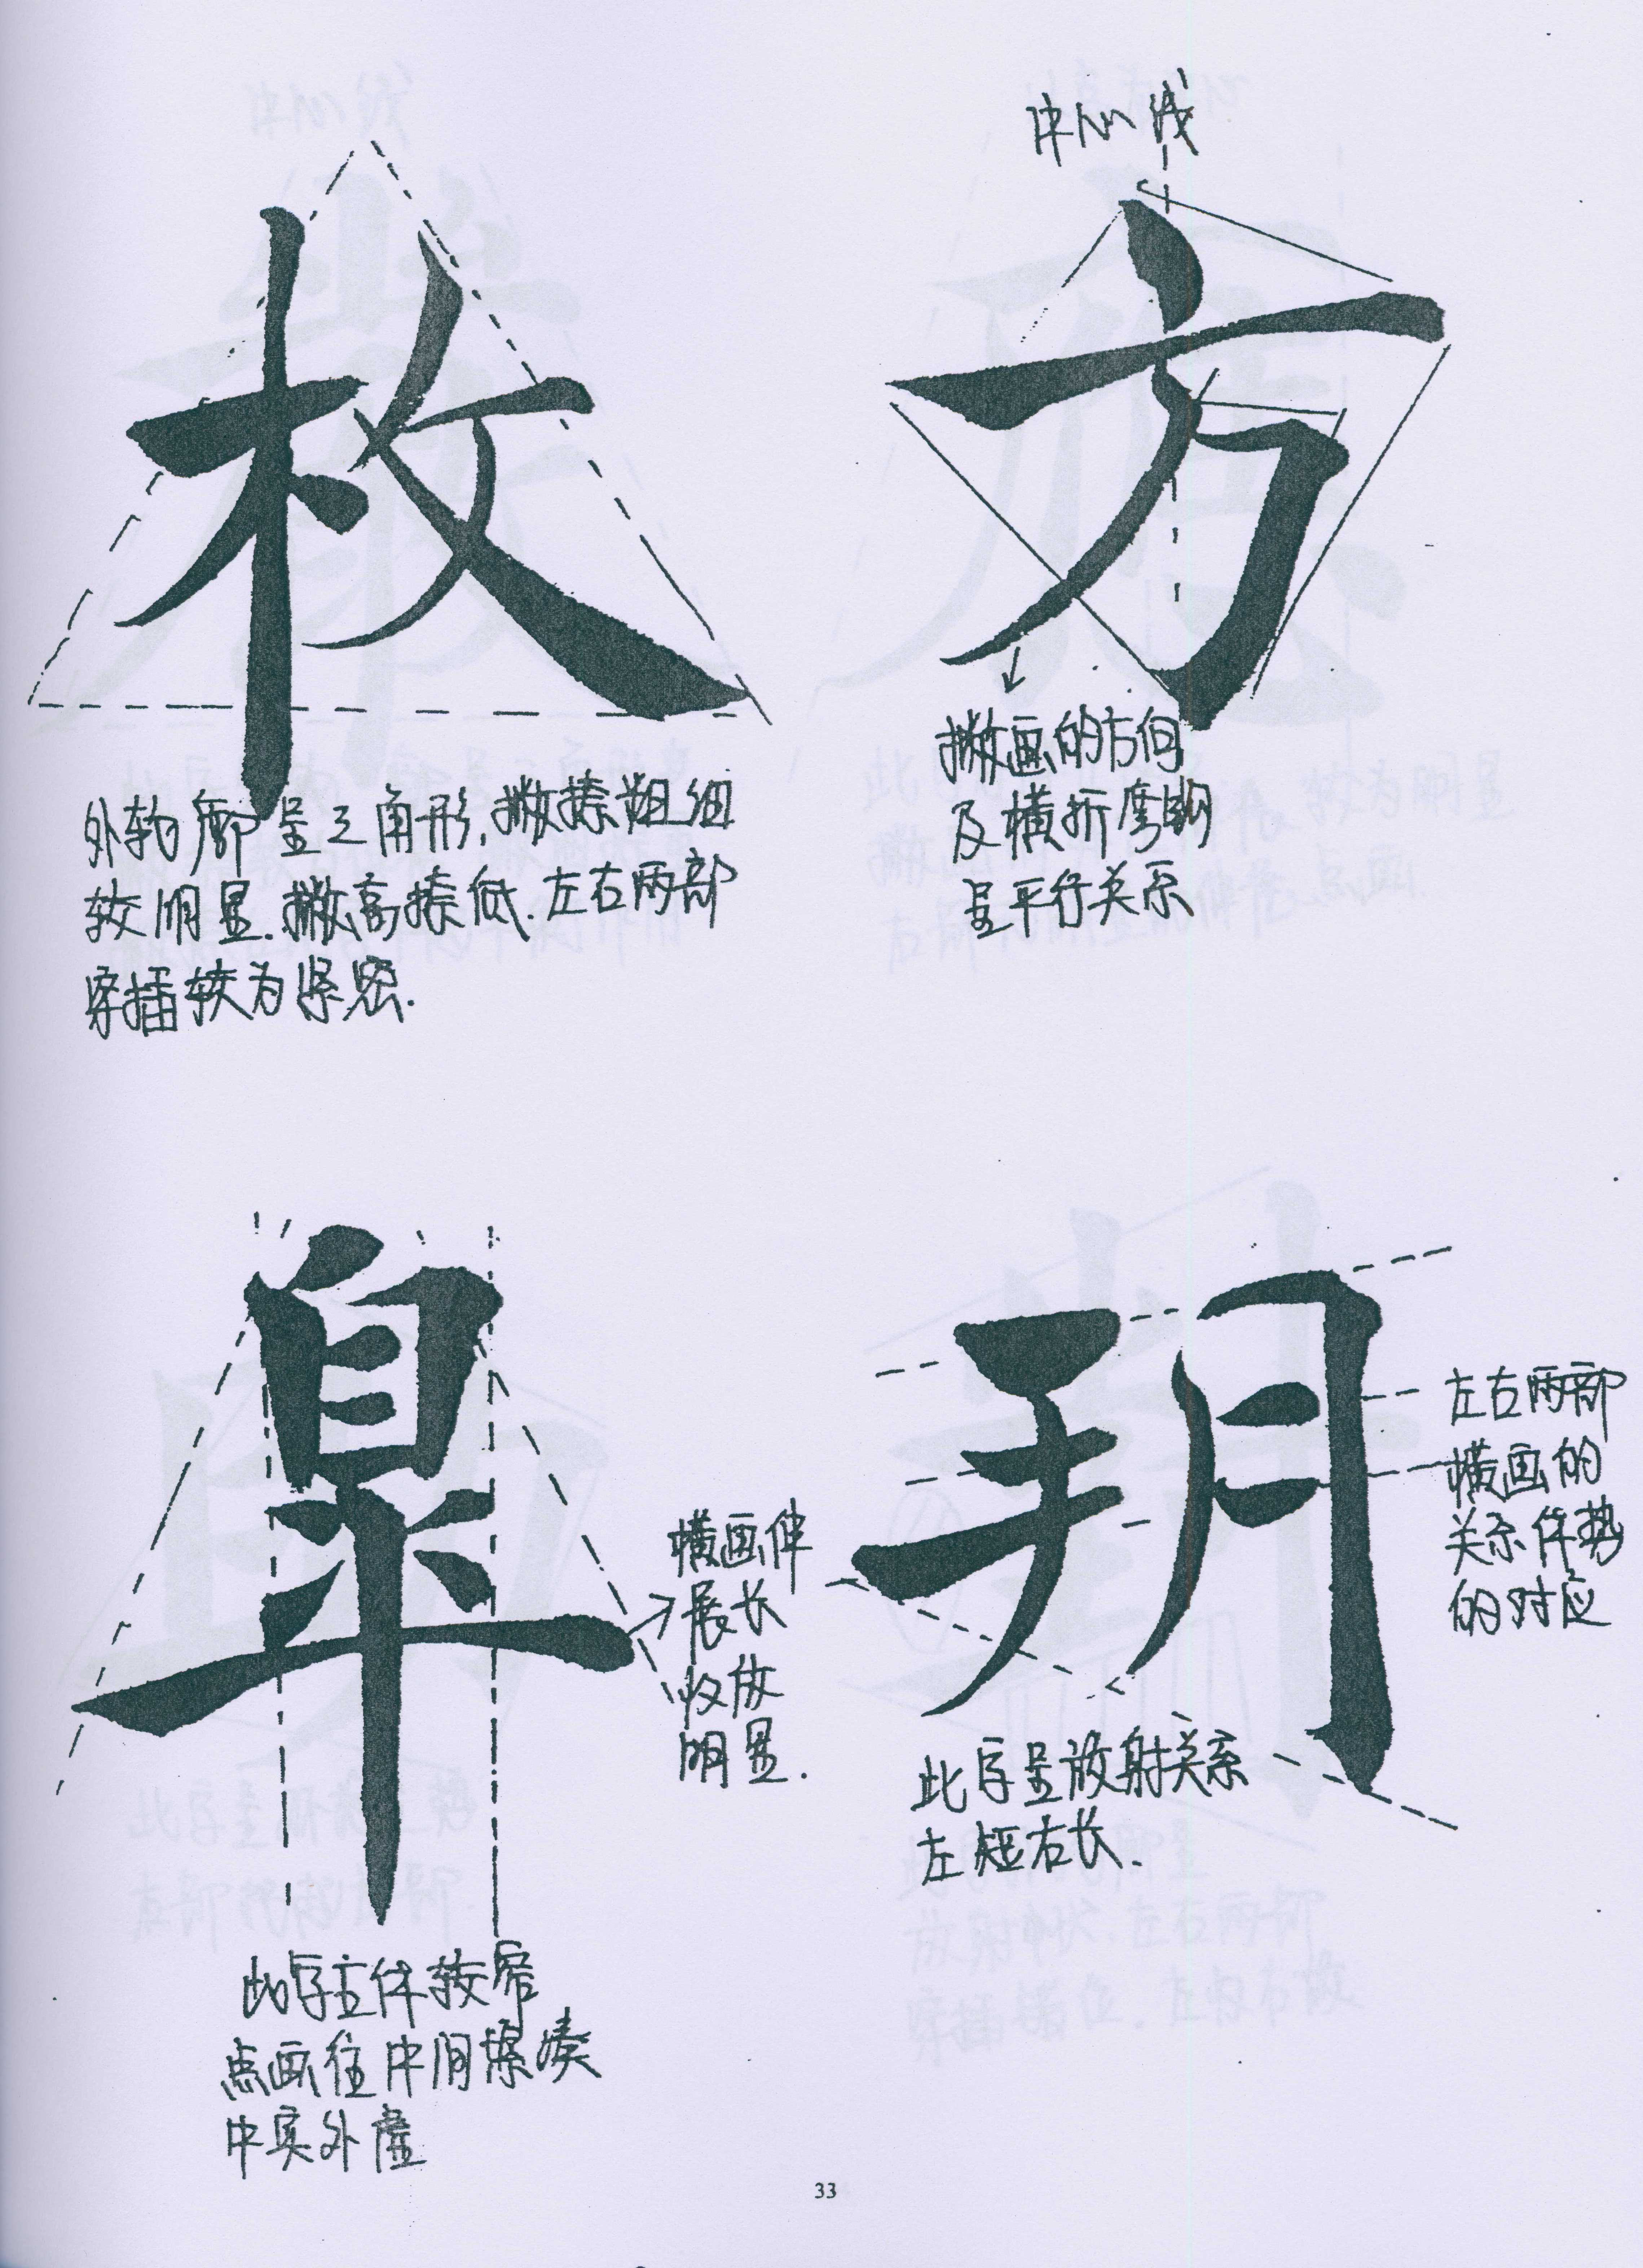 枚
外轮廓呈三角形,撇捺粗细
较明显.撇高捺低.左右两部
穿插较为紧密.
中心线
方
撇画的方向
及横折弯钩
呈平行关系
皐
横画伸
展长
收放
明显.
此字主体较窄
点画往中间聚凑
中实外虚
玥
左右两部
横画的
关系体势
的对应
此字呈放射关系
左短右长.
33